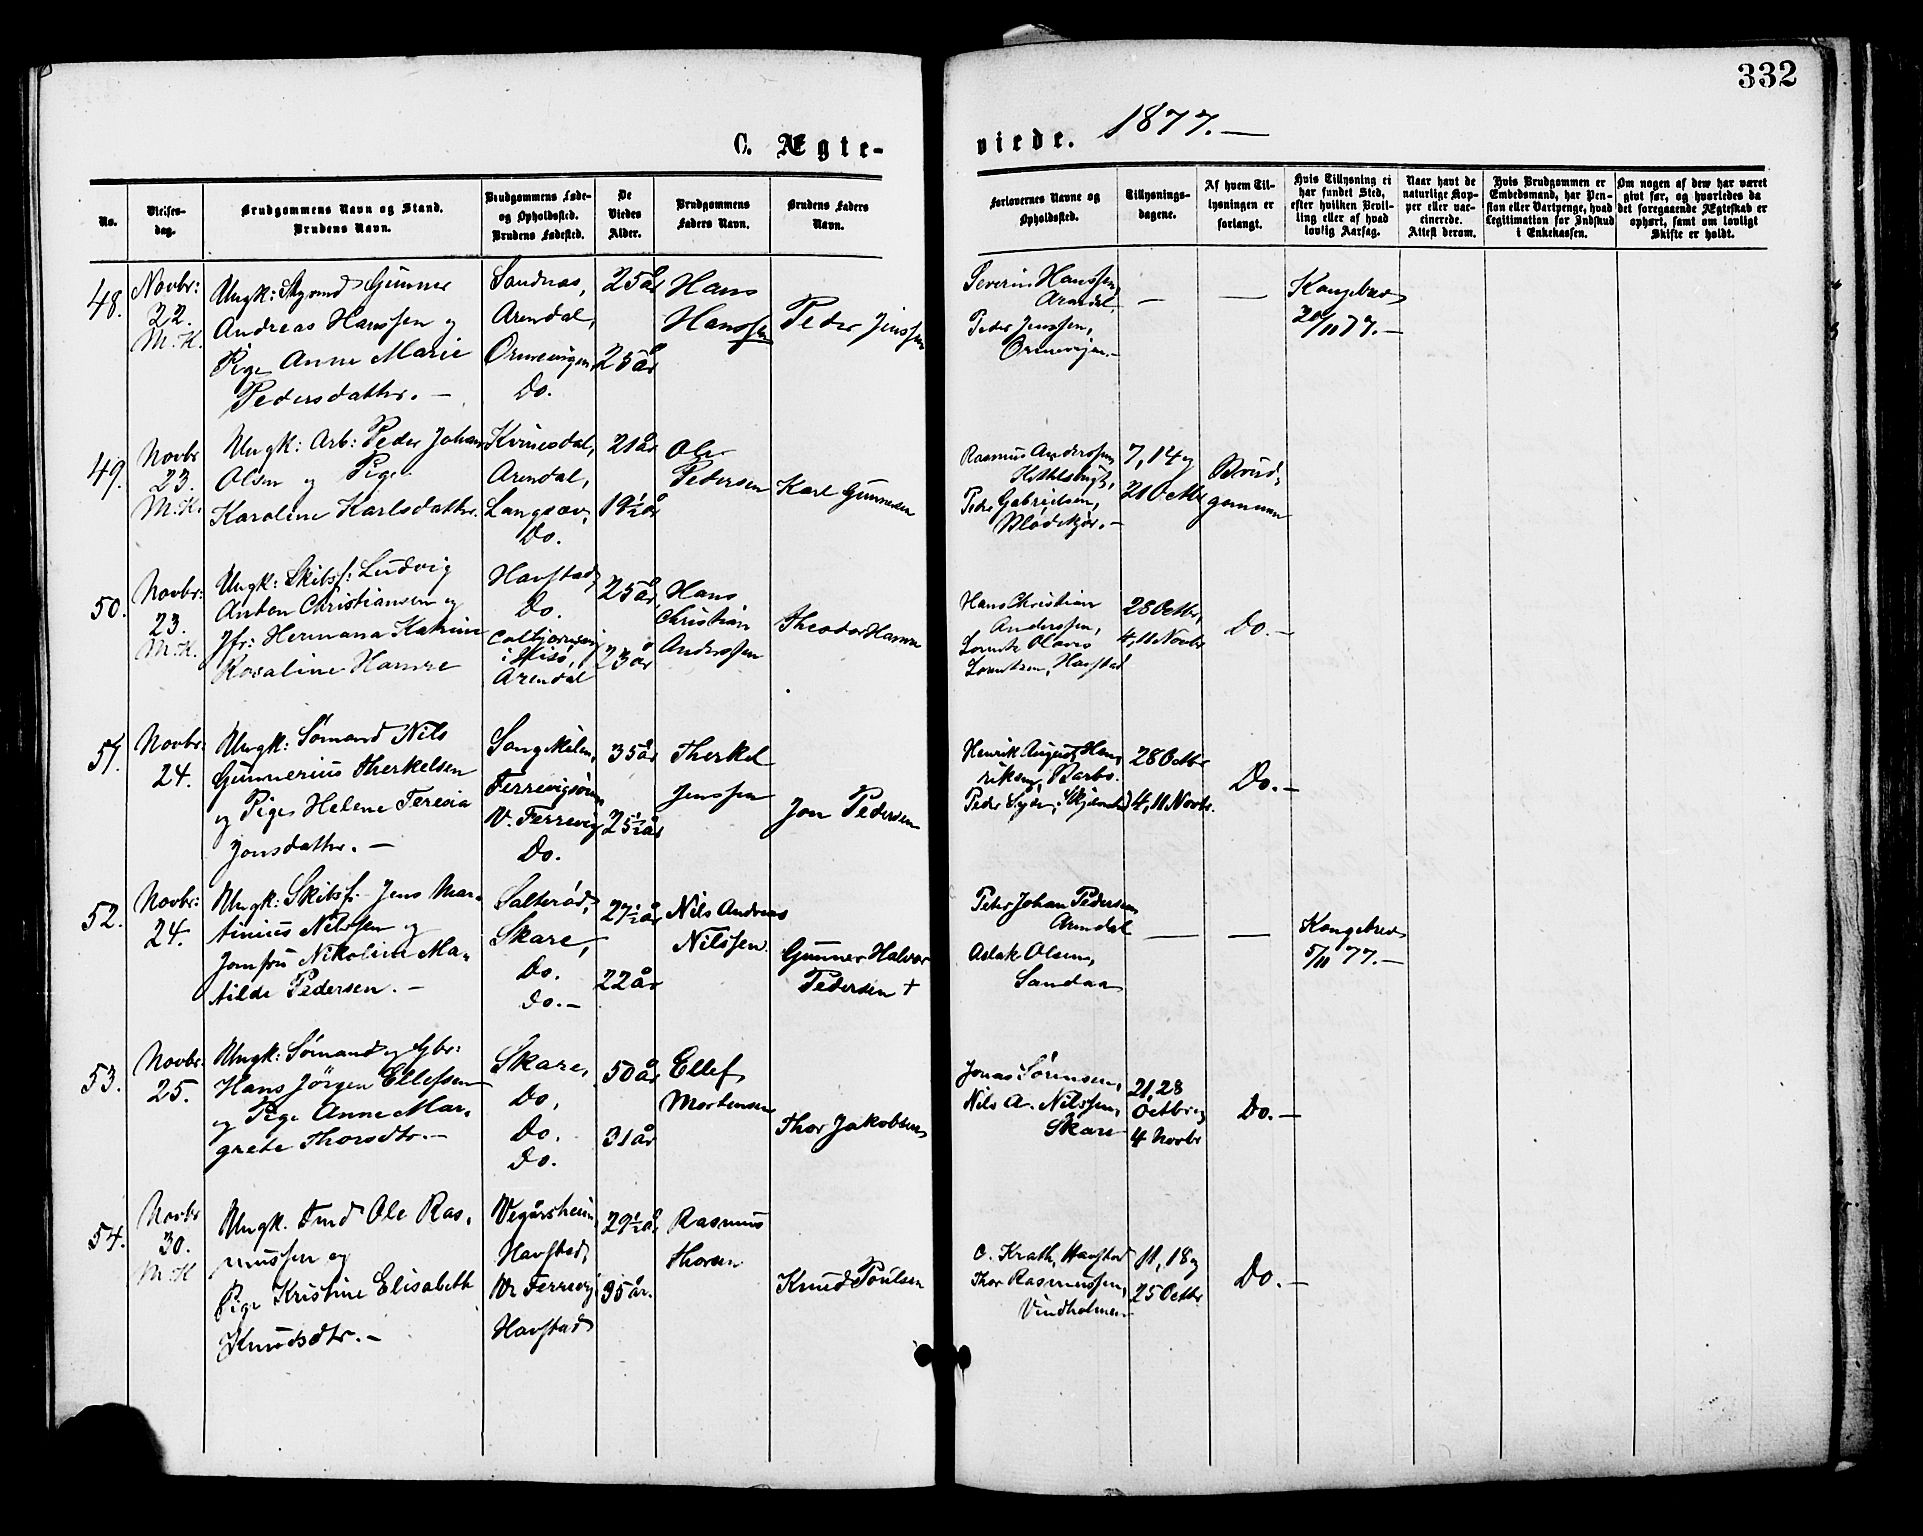 332
C. Ægte-
viede. 1877.—
No.
Vielses-
dag.
Brudgommens Navn og Stand.
Brudens Navn.
Brudgommens Føde-
og Opholdssted.
Brudens Fødested.
De
Viedes
Alder.
Brudgommens
Faders Navn.
Brudens Faders
Navn.
Forlovernes Navne og
Opholdssted.
Tillysnings-
dagene.
Af hvem Til-
lysningen er
forlangt.
Hvis Tillysning ei
har fundet Sted,
efter hvilken Bevil-
ling eller af hvad
lovlig Aarsag.
Naar havt de
naturlige Kop-
per eller vac-
cinerede.
Attest derom.
Hvis Brudgommen er
Embedsmand, har Pen-
sion eller Vartpenge, hvad
Legitimation for Indskud
i Enkekassen.
Om nogen af dem har været
gift før, og hvorledes da
det foregaaende Ægteskab er
ophørt, samt om lovligt
Skifte er holdt.
48.
Novbr:
22.
M.K.
Ungk: Styrmd Gunner
Andreas Hanssen og
Pige Anne Marie
Pedersdatter. —
Sandnæs,
Arendal,
Do.
25 år
25 år
Hans
Hanssen
Peder Jenssen
Severin Hanssen,
Arendal,
Peder Jenssen,
—
—
Kongebrev
20/11 77. —
49.
Novbr
23.
M.K.
Ungk: Arb: Peder Johan
Olsen og Pige
Karoline Karlsdatter.
Kvinesdal,
Arendal,
Langsæv,
Do.
21 år
19½ år
Ole
Pedersen
Karl Gunnersen
Rasmus Anderssen,
Peder Gabrielsen,
7, 14 og
21 Octbr
Brud-
gommen
50.
Novbr:
23.
M.K.
Ungk: Skibsf: Ludvig
Anton Christiansen og
Jfr: Hermana Katrine
Rosaline Hamre
Havstad,
Do.
Colbjørnsvig
i Hisø,
Arendal
25 år
23 år
Hans
Christian
Anderssen
Theodor Hamre
Hans Christian
Anderssen,
Olavs
Lorentzen, Havstad
28 Octbr,
4, 11 Novbr
Do. —
51.
Novbr:
24.
Ungk: Sømand Nils
Gunnerius Therkelsen
og Pige Helene Teresia
Jonsdatter. —
Songekilen,
V. Ferrevig
Do.
35 år
25½ år
Therkel
Jenssen
Jon Pedersen
Henrik August Hen-
riksen, Barbo.
28 Octbr
4, 11 Novbr.
Do. —
52.
Novbr:
24.
Ungk: Skibsf. Jens Mar-
tinius Nilssen og
Jomfru Nikoline Ma-
tilde Pedersen. —
Salterød,
Skare,
Do.
Do. —
27½ år
22 år
Nils Andreas
Nilssen.
Gunner Halvor
Pedersen +
Peter Johan Pedersen,
Arendal
Aslak Olsen,
Sandaa
—
—
Kongebrev
5/11 77. —
53.
Novbr:
25.
Ungk: Sømand og Gbr:
Hans Jörgen Ellefsen
og Pige Anne Mar-
grete Thorsdtr. —
Skare,
Do,
Do.
Do.
50 år
31 år
Ellef
Mortensen
Thor Jakobsen
Jonas Sørensen,
Nils A. Nilssen,
Skare
21, 28
Octbr og
4 Novbr
Do. —
54.
Novbr
30.
M.K
Ungk. Tmd Ole Ras-
mussen og
Pige Kristine Elisabeth
Knudsdtr. —
Vegårsheien,
Havstad,
Vr Ferrevig
Havstad
29½ å.
35 år.
Rasmus
Thorsen
Knud Poulsen
C. Krath, Havstad
Thor Rasmussen,
Vindholmen
11, 18 og
25 Octbr.
Do. —